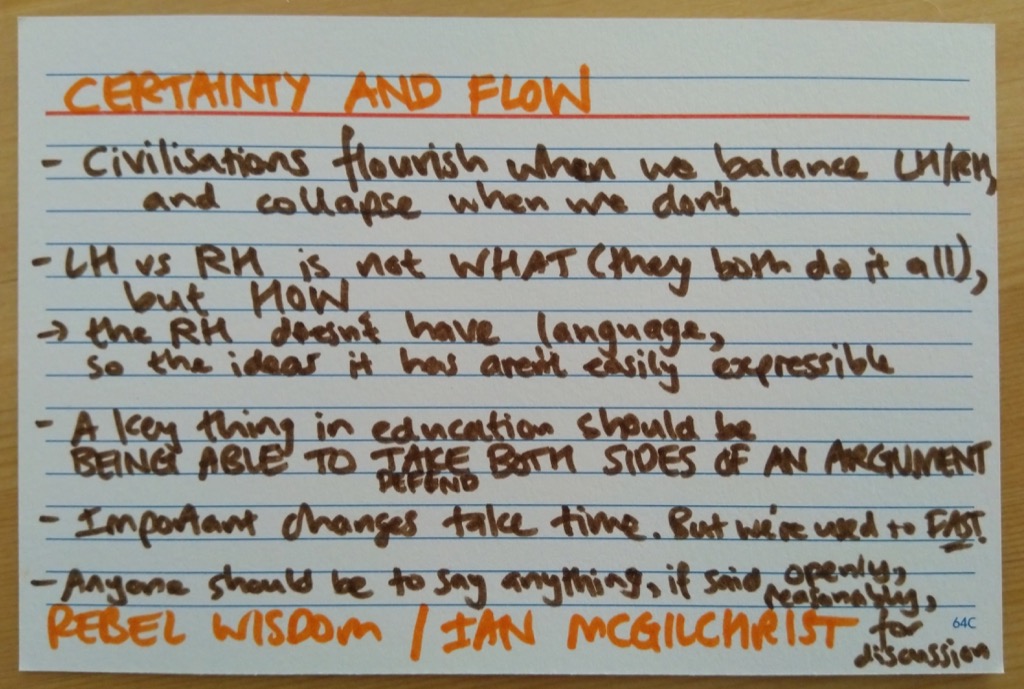 CERTAINTY AND FLOW
- Civilisations flourish when we balance LH/RH,
and collapse when we don't
- LH vs RH is not WHAT (they both do it all),
but HOW
→ the RH doesn't have language,
so the ideas it has aren't easily expressible
- A key thing in education should be
BEING ABLE TO TAKE BOTH SIDES OF AN ARGUMENT
DEFEND
- Important changes take time. But we're used to FAST.
- Anyone should be to say anything, if said openly,
reasonably,
for
discussion
REBEL WISDOM / IAN MCGILCHRIST
64C